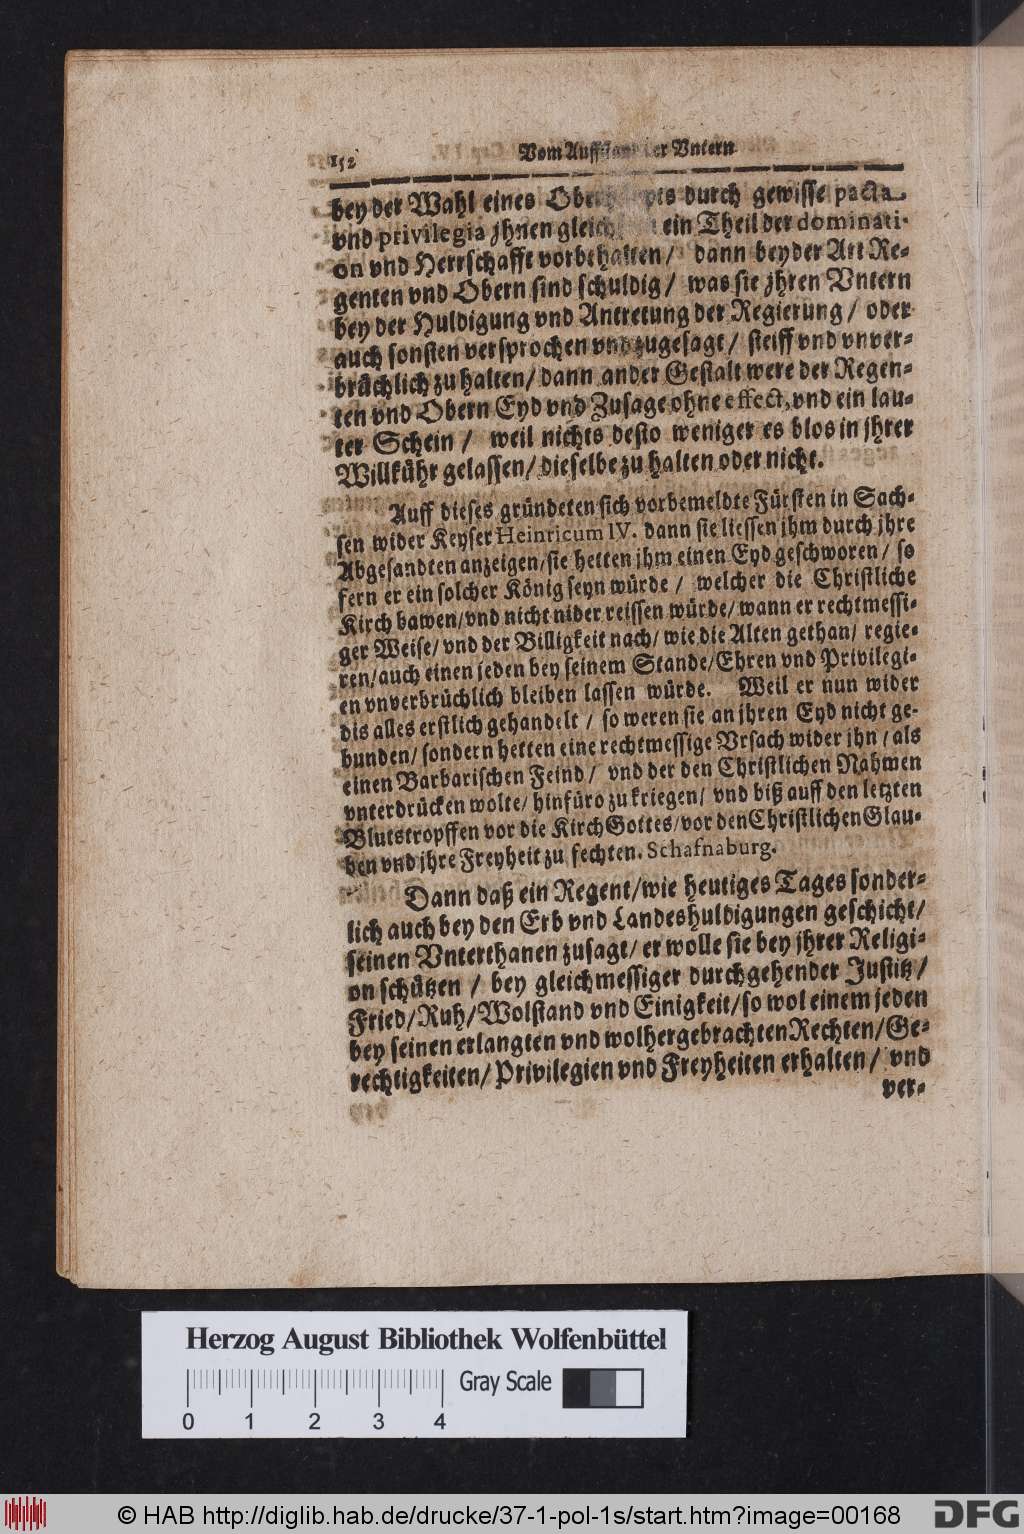 152 Vom Auffstand der Vntern
bey der Wahl eines Oberhaupts durch gewisse pacta
vnd privilegia jhnen gleich ein Theil der dominati-
on vnd Herrschafft vorbehalten / dann beyder Art Re-
genten vnd Obern sind schuldig / was sie jhren Vntern
bey der Huldigung vnd Antretung der Regierung / oder
auch sonsten versprochen vnd zugesagt / steiff vnd vnver-
brüchlich zu halten / dann ander Gestalt were der Regen-
ten vnd Obern Eyd vnd Zusage ohne effect, vnd ein lau-
ter Schein / weil nichts desto weniger es blos in jhrer
Willkühr gelassen / dieselbe zu halten oder nicht.
Auff dieses gründeten sich vorbemeldte Fürsten in Sach-
sen wider Keyser Heinricum IV. dann sie liessen jhm durch jhre
Abgesandten anzeigen / sie hetten jhm einen Eyd geschworen / so
fern er ein solcher König seyn würde / welcher die Christliche
Kirch bawen / vnd nicht nider reissen würde / wann er rechtmessi-
ger Weise / vnd der Billigkeit nach / wie die Alten gethan / regie-
ren / auch einen jeden bey seinem Stande / Ehren vnd Privilegi-
en vnverbrüchlich bleiben lassen würde. Weil er nun wider
dis alles erstlich gehandelt / so weren sie an jhren Eyd nicht ge-
bunden / sondern hetten eine rechtmessige Vrsach wider jhn / als
einen Barbarischen Feind / vnd der den Christlichen Nahmen
vnterdrücken wolte / hinfüro zu kriegen / vnd biß auff den letzten
Blutstropffen vor die Kirch Gottes / vor den Christlichen Glau-
ben vnd jhre Freyheit zu fechten. Schafnaburg.
Dann daß ein Regent / wie heutiges Tages sonder-
lich auch bey den Erb vnd Landeshuldigungen geschicht /
seinen Vnterthanen zusagt / er wolle sie bey jhrer Religi-
on schützen / bey gleichmessiger durchgehender Justitz /
Fried / Ruh / Wolstand vnd Einigkeit / so wol einem jeden
bey seinen erlangten vnd wolhergebrachten Rechten / Ge-
rechtigkeiten / Privilegien vnd Freyheiten erhalten / vnd
ver-
Herzog August Bibliothek Wolfenbüttel
Gray Scale
0 1 2 3 4
© HAB http://diglib.hab.de/drucke/37-1-pol-1s/start.htm?image=00168 DFG